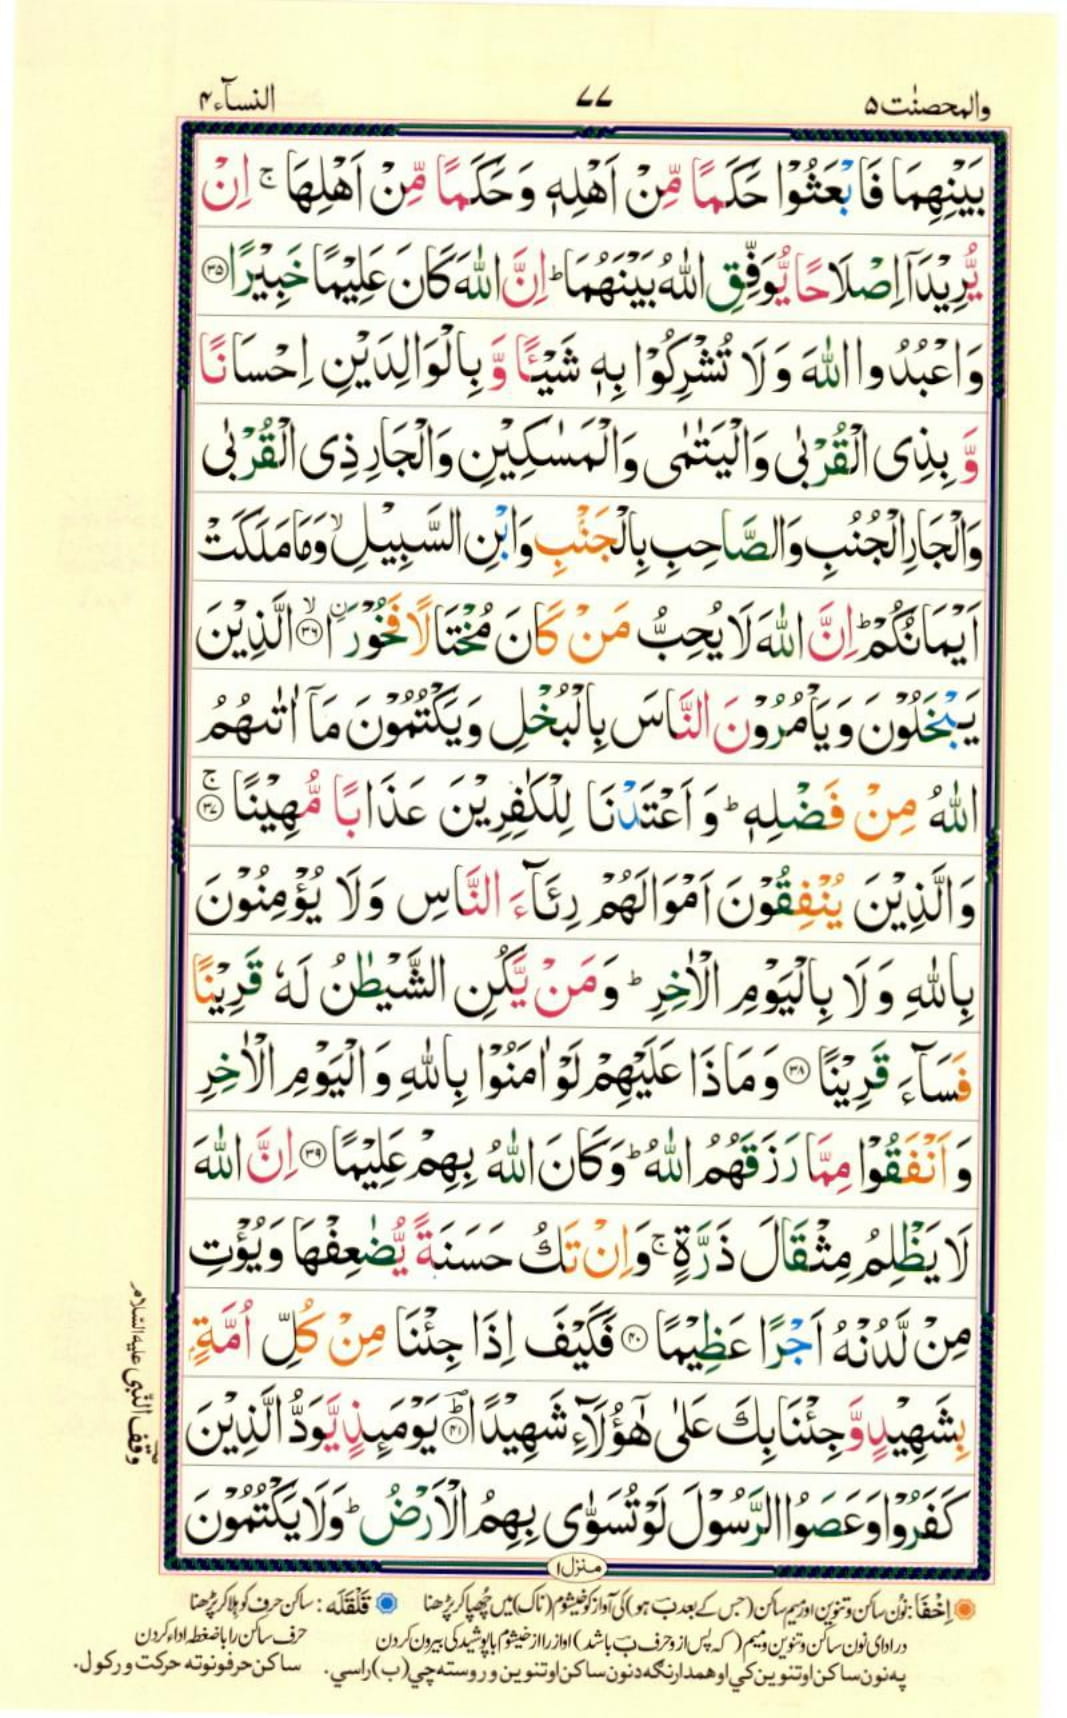 والمحصنٰت ۵ ۷۷ النسآء ۴
بَيْنِهِمَا فَابْعَثُوْا حَكَمًا مِّنْ اَهْلِهٖ وَحَكَمًا مِّنْ اَهْلِهَا ۚ اِنْ
يُّرِيْدَآ اِصْلَاحًا يُّوَفِّقِ اللّٰهُ بَيْنَهُمَا ؕ اِنَّ اللّٰهَ كَانَ عَلِيْمًا خَبِيْرًا ﴿۳۵﴾
وَاعْبُدُوا اللّٰهَ وَلَا تُشْرِكُوْا بِهٖ شَيْـًٔا وَّ بِالْوَالِدَيْنِ اِحْسَانًا
وَّ بِذِى الْقُرْبٰى وَالْيَتٰمٰى وَالْمَسٰكِيْنِ وَالْجَارِ ذِى الْقُرْبٰى
وَالْجَارِ الْجُنُبِ وَالصَّاحِبِ بِالْجَنْۢبِ وَابْنِ السَّبِيْلِ ۙ وَمَا مَلَكَتْ
اَيْمَانُكُمْ ؕ اِنَّ اللّٰهَ لَا يُحِبُّ مَنْ كَانَ مُخْتَالًا فَخُوْرَاۨ ۙ ﴿۳۶﴾ الَّذِيْنَ
يَبْخَلُوْنَ وَيَاْمُرُوْنَ النَّاسَ بِالْبُخْلِ وَيَكْتُمُوْنَ مَآ اٰتٰىهُمُ
اللّٰهُ مِنْ فَضْلِهٖ ؕ وَاَعْتَدْنَا لِلْكٰفِرِيْنَ عَذَابًا مُّهِيْنًا ۚ ﴿۳۷﴾
وَالَّذِيْنَ يُنْفِقُوْنَ اَمْوَالَهُمْ رِئَآءَ النَّاسِ وَلَا يُؤْمِنُوْنَ
بِاللّٰهِ وَلَا بِالْيَوْمِ الْاٰخِرِ ؕ وَمَنْ يَّكُنِ الشَّيْطٰنُ لَهٗ قَرِيْنًا
فَسَآءَ قَرِيْنًا ﴿۳۸﴾ وَمَاذَا عَلَيْهِمْ لَوْ اٰمَنُوْا بِاللّٰهِ وَالْيَوْمِ الْاٰخِرِ
وَاَنْفَقُوْا مِمَّا رَزَقَهُمُ اللّٰهُ ؕ وَكَانَ اللّٰهُ بِهِمْ عَلِيْمًا ﴿۳۹﴾ اِنَّ اللّٰهَ
لَا يَظْلِمُ مِثْقَالَ ذَرَّةٍ ۚ وَاِنْ تَكُ حَسَنَةً يُّضٰعِفْهَا وَيُؤْتِ
مِنْ لَّدُنْهُ اَجْرًا عَظِيْمًا ﴿۴۰﴾ فَكَيْفَ اِذَا جِئْنَا مِنْ كُلِّ اُمَّةٍۭ
بِشَهِيْدٍ وَّجِئْنَا بِكَ عَلٰى هٰٓؤُلَآءِ شَهِيْدًا ؕ ﴿۴۱﴾ يَوْمَئِذٍ يَّوَدُّ الَّذِيْنَ
كَفَرُوْا وَعَصَوُا الرَّسُوْلَ لَوْ تُسَوّٰى بِهِمُ الْاَرْضُ ؕ وَلَا يَكْتُمُوْنَ
وقف النّبى عليه السّلام
منزل ۱
اِخْفَا: نون ساکن و تنوین اور میم ساکن (جس کے بعد ب ہو) کی آواز کو خیشوم (ناک) میں چھپا کر پڑھنا قَلْقَلَه: ساکن حرف کو ہلا کر پڑھنا
در ادای نون ساکن و تنوین و میم (که پس از و حرف ب باشد) آواز را از خیشوم با پوشیدگی بیرون کردن حرف ساکن را با ضغطه اداء کردن
په نون ساکن او تنوین کي او همدارنګه د نون ساکن او تنوین و روسته چي (ب) راسي. ساکن حرفو نو ته حرکت ورکول.